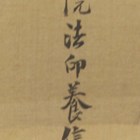 院法印養信